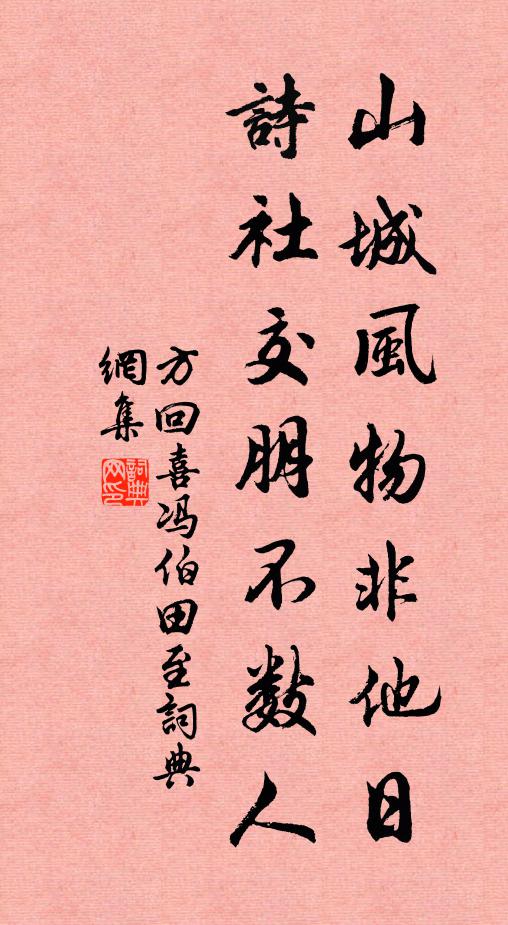 山城風物非他日
詩社交朋不数人
方回喜冯伯田至詞典
網集
詞典网印